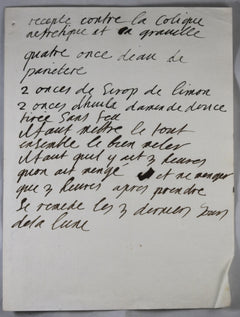 recepte contre la Colique
nefretique et la gravelle
quatre once deau de
parietere
2 onces de Sirop de limon
2 onces dhuille damande douce
tirée Sans feu
il faut mettre le tout
ensemble le bien meler
il faut quil y ait 3 heures
quon ait mengé et ne menger
que 3 heures apres prendre
Se remede les 3 derniers Jours
de la lune